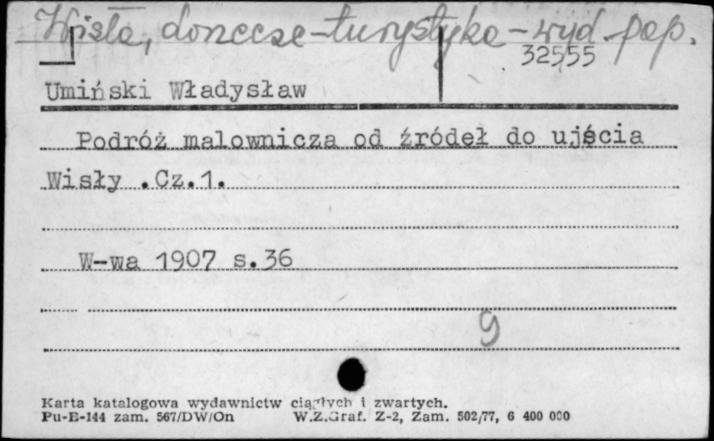 Wisła, dorzecze - turystyka - wyd. pop.
32555
Umiński Władysław
Podróż malownicza od źródeł do ujścia
Wisły .Cz.1.
W-wa 1907 s.36
9
Karta katalogowa wydawnictw ciągłych i zwartych.
Pu-E-144 zam. 567/DW/On W.Z.Graf. Z-2, Zam. 502/77, 6 400 000